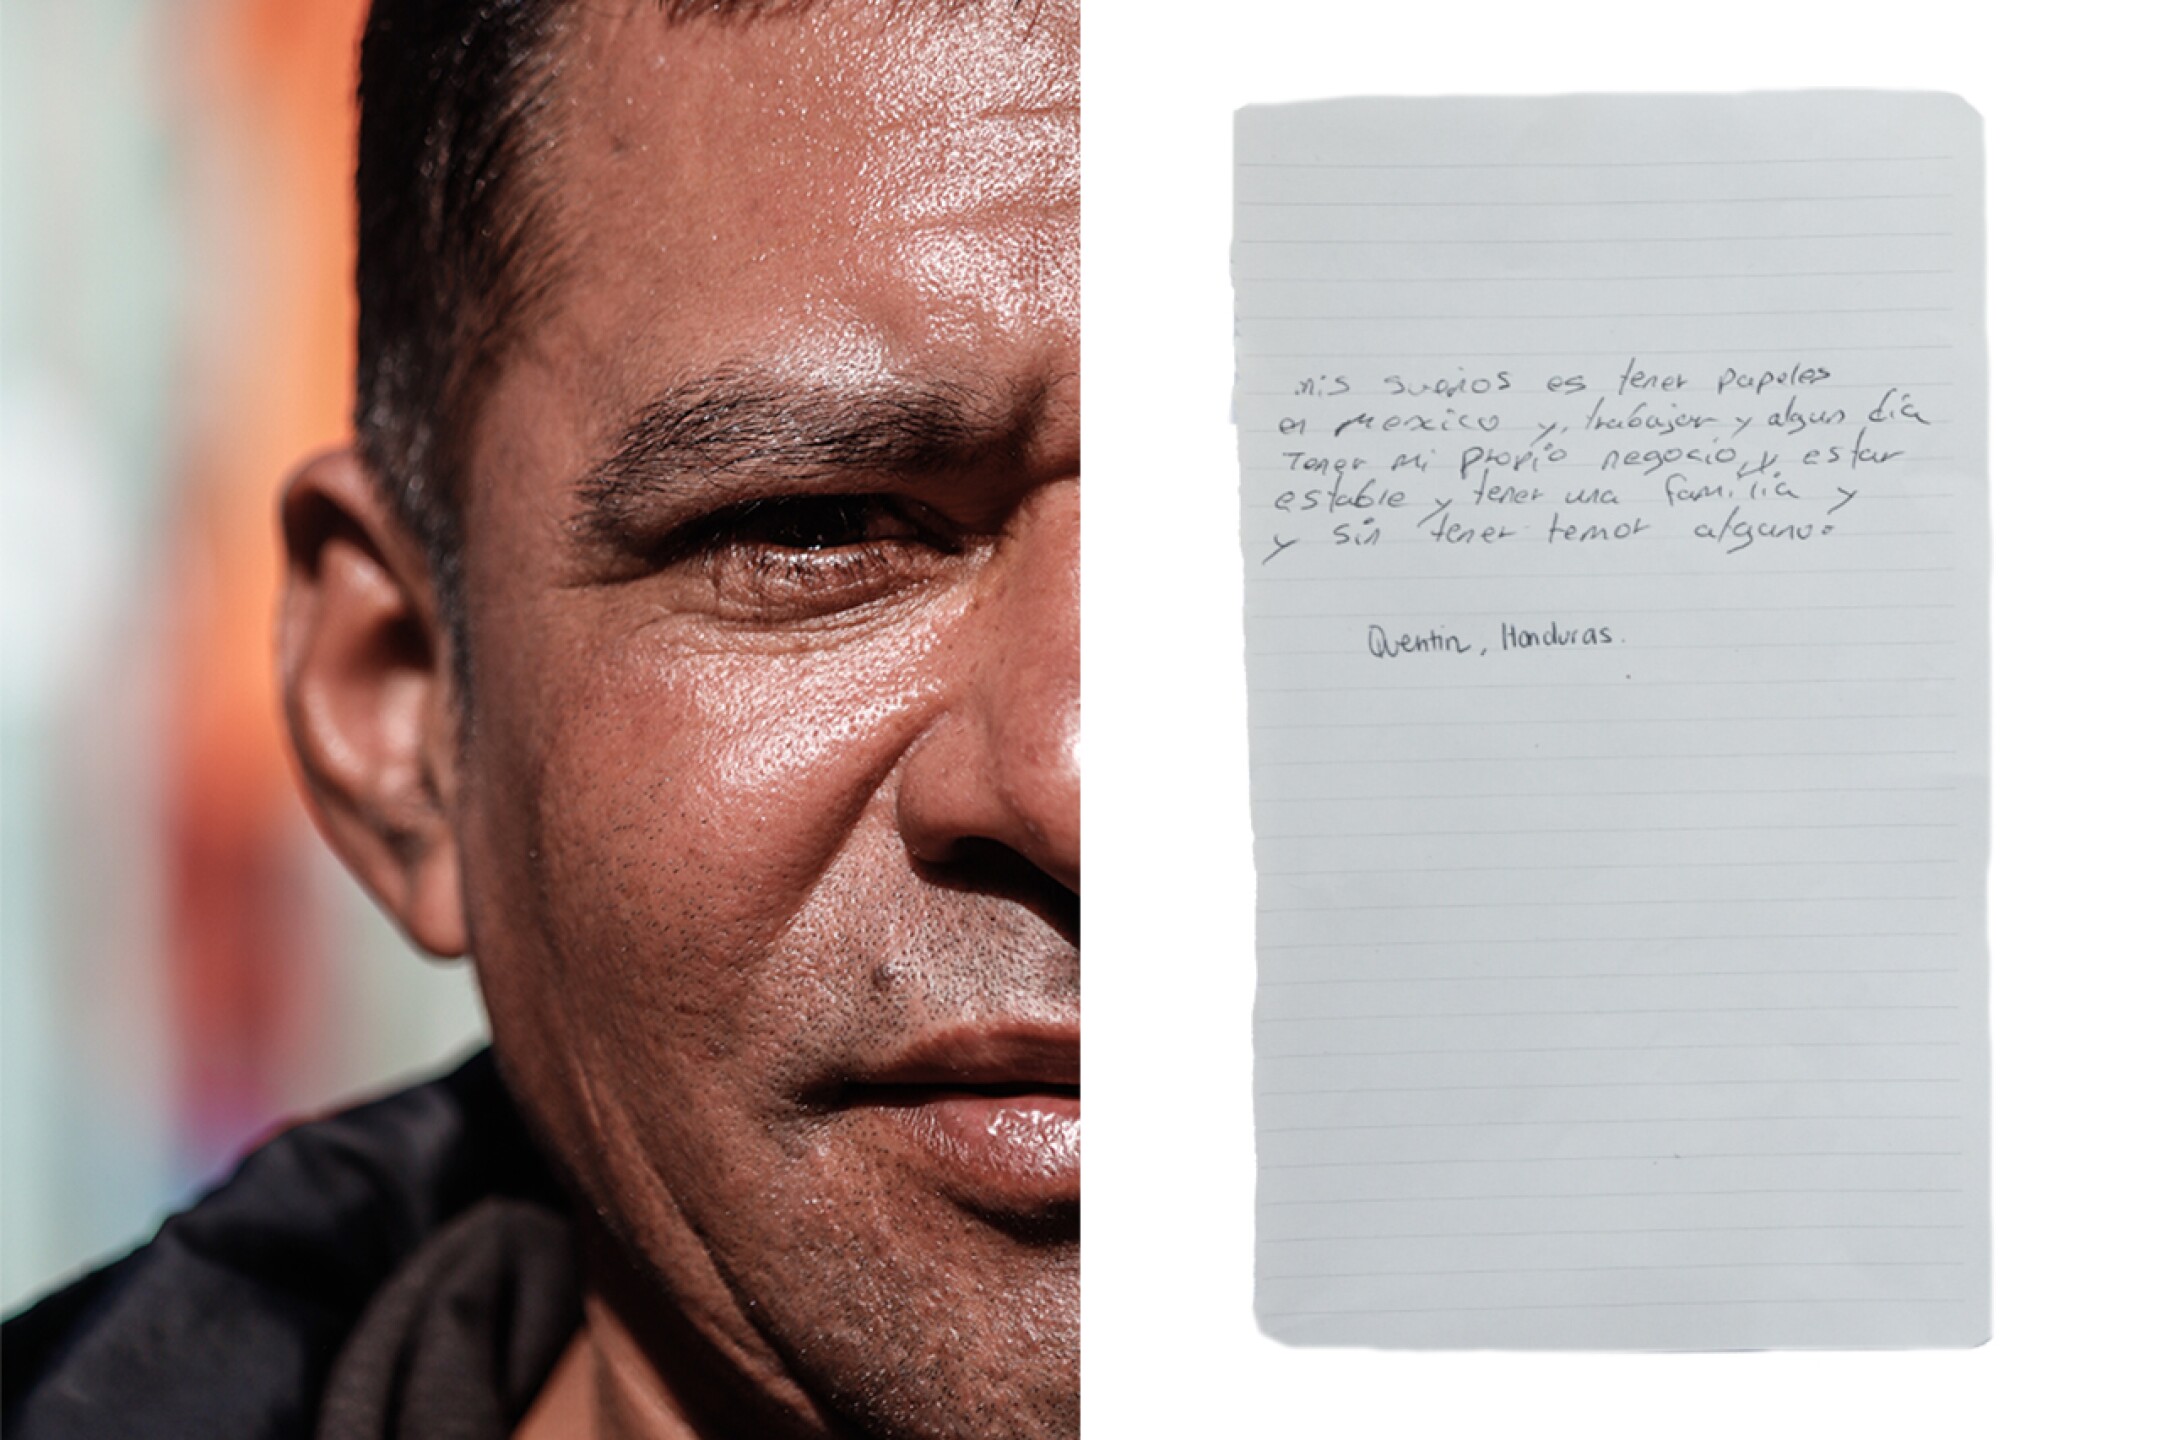 mis sueños es tener papeles
en mexico y, trabajar y algun día
Tener mi propio negocio, y estar
estable y tener una familia y
y sin tener temor alguno.
Quentin, Honduras.